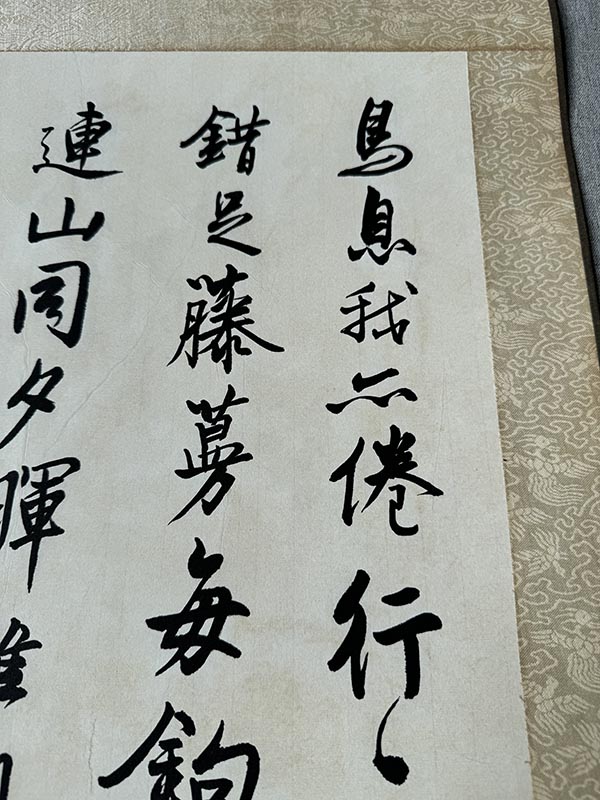 鳥息我亦倦行〻
錯足藤蔓每鉤
連山同夕暉